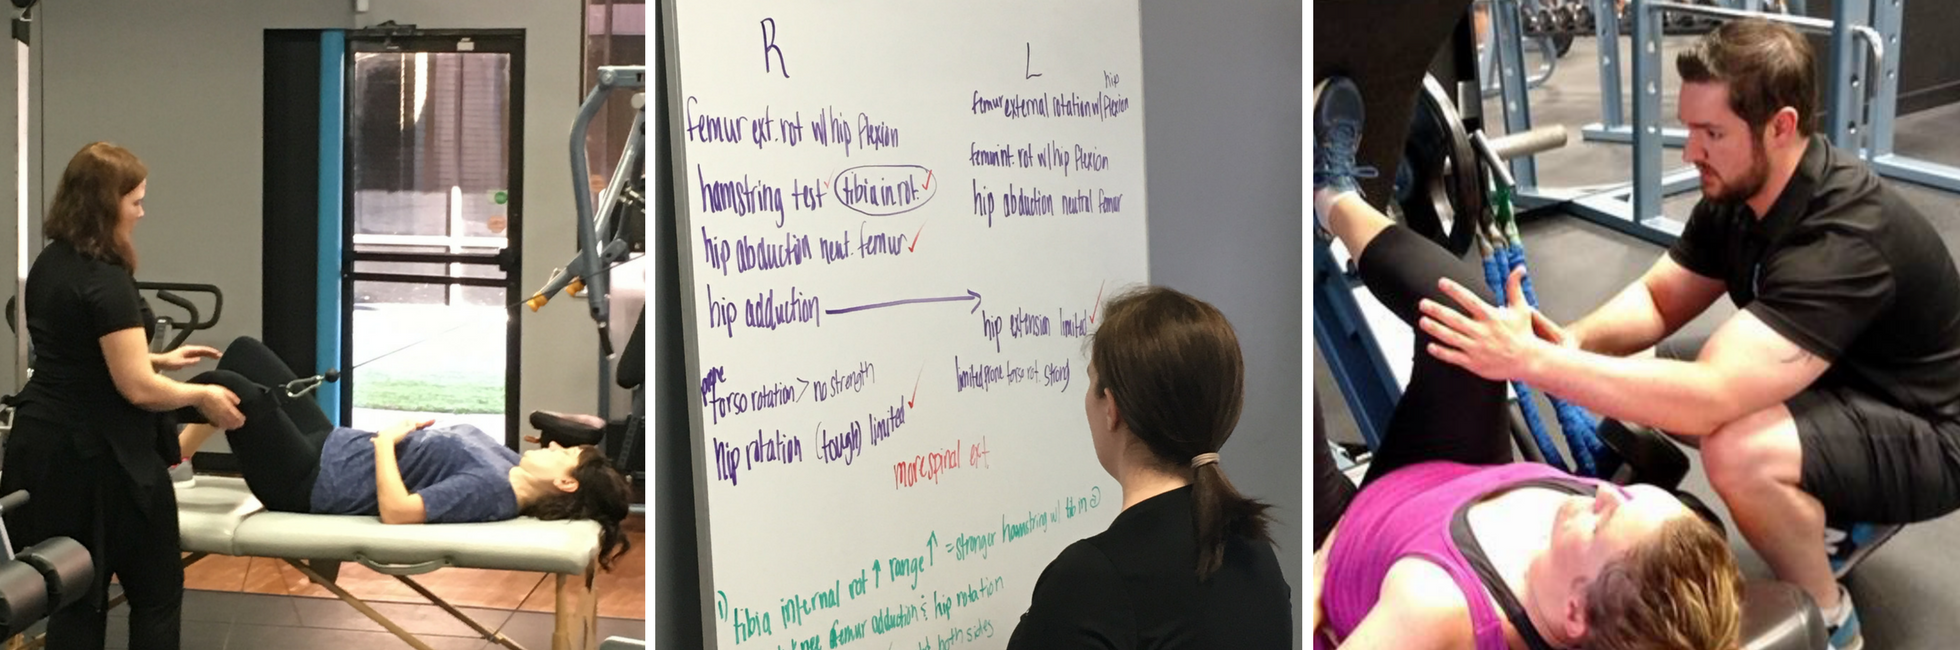 R
femur ext. rot w/ hip flexion
hamstring test tibia in rot.
hip abduction neut. femur
hip adduction
prone
torso rotation > no strength
hip rotation (tough) limited
L
hip
femur external rotation w/ flexion
femur int. rot w/ hip flexion
hip abduction neutral femur
hip extension limited
limited prone torso rot. strong
more spinal ext
1) tibia internal rot ↑ range ↑ = stronger hamstring w/ tib in
knee femur adduction & hip rotation
both sides